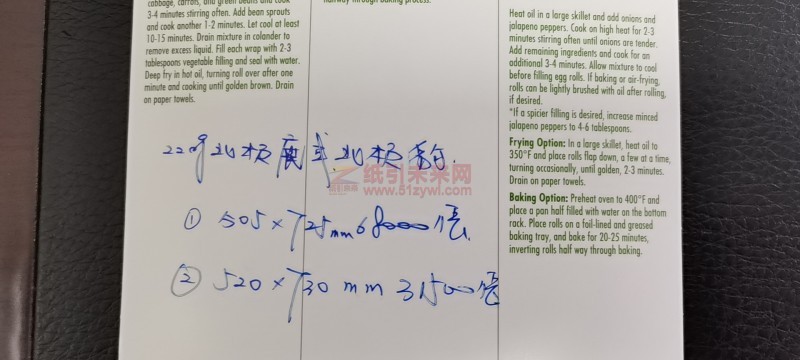 cabbage, carrots, and green beans and cook
3-4 minutes stirring often. Add bean sprouts
and cook another 1-2 minutes. Let cool at least
10-15 minutes. Drain mixture in colander to
remove excess liquid. Fill each wrap with 2-3
tablespoons vegetable filling and seal with water.
Deep fry in hot oil, turning roll over after one
minute and cooking until golden brown. Drain
on paper towels.
halfway through baking process.
Heat oil in a large skillet and add onions and
jalapeno peppers. Cook on high heat for 2-3
minutes stirring often until onions are tender.
Add remaining ingredients and cook for an
additional 3-4 minutes. Allow mixture to cool
before filling egg rolls. If baking or air-frying,
rolls can be lightly brushed with oil after rolling,
if desired.
*If a spicier filling is desired, increase minced
jalapeno peppers to 4-6 tablespoons.
Frying Option: In a large skillet, heat oil to
350°F and place rolls flap down, a few at a time,
turning occasionally, until golden, 2-3 minutes.
Drain on paper towels.
Baking Option: Preheat oven to 400°F and
place a pan half filled with water on the bottom
rack. Place rolls on a foil-lined and greased
baking tray, and bake for 20-25 minutes,
inverting rolls half way through baking.
白板
白板
纸引未来网
www.51zywl.com
① 505×725mm 68000张
② 520×730 mm 31500张